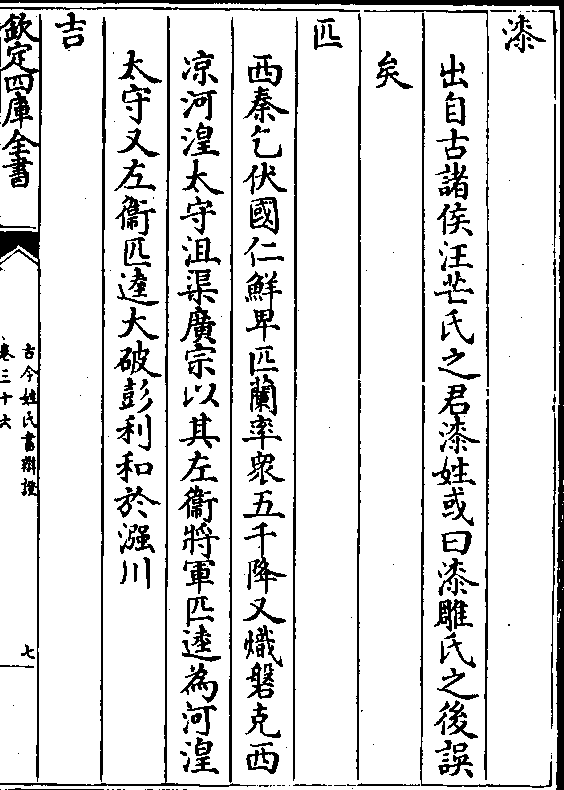 漆
出自古諸侯汪芒氏之君漆姓或曰漆雕氏之後誤
矣
匹
西秦乞伏國仁鮮卑匹蘭率衆五千降又熾磐克西
凉河湟太守沮渠廣宗以其左衞將軍匹逵為河湟
太守又左衞匹逵大破彭利和於漒川
吉
欽定四庫全書
古今姓氏書辯證
卷三十六
七